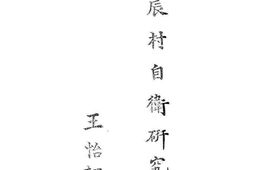 辰村自衛研究
王怡